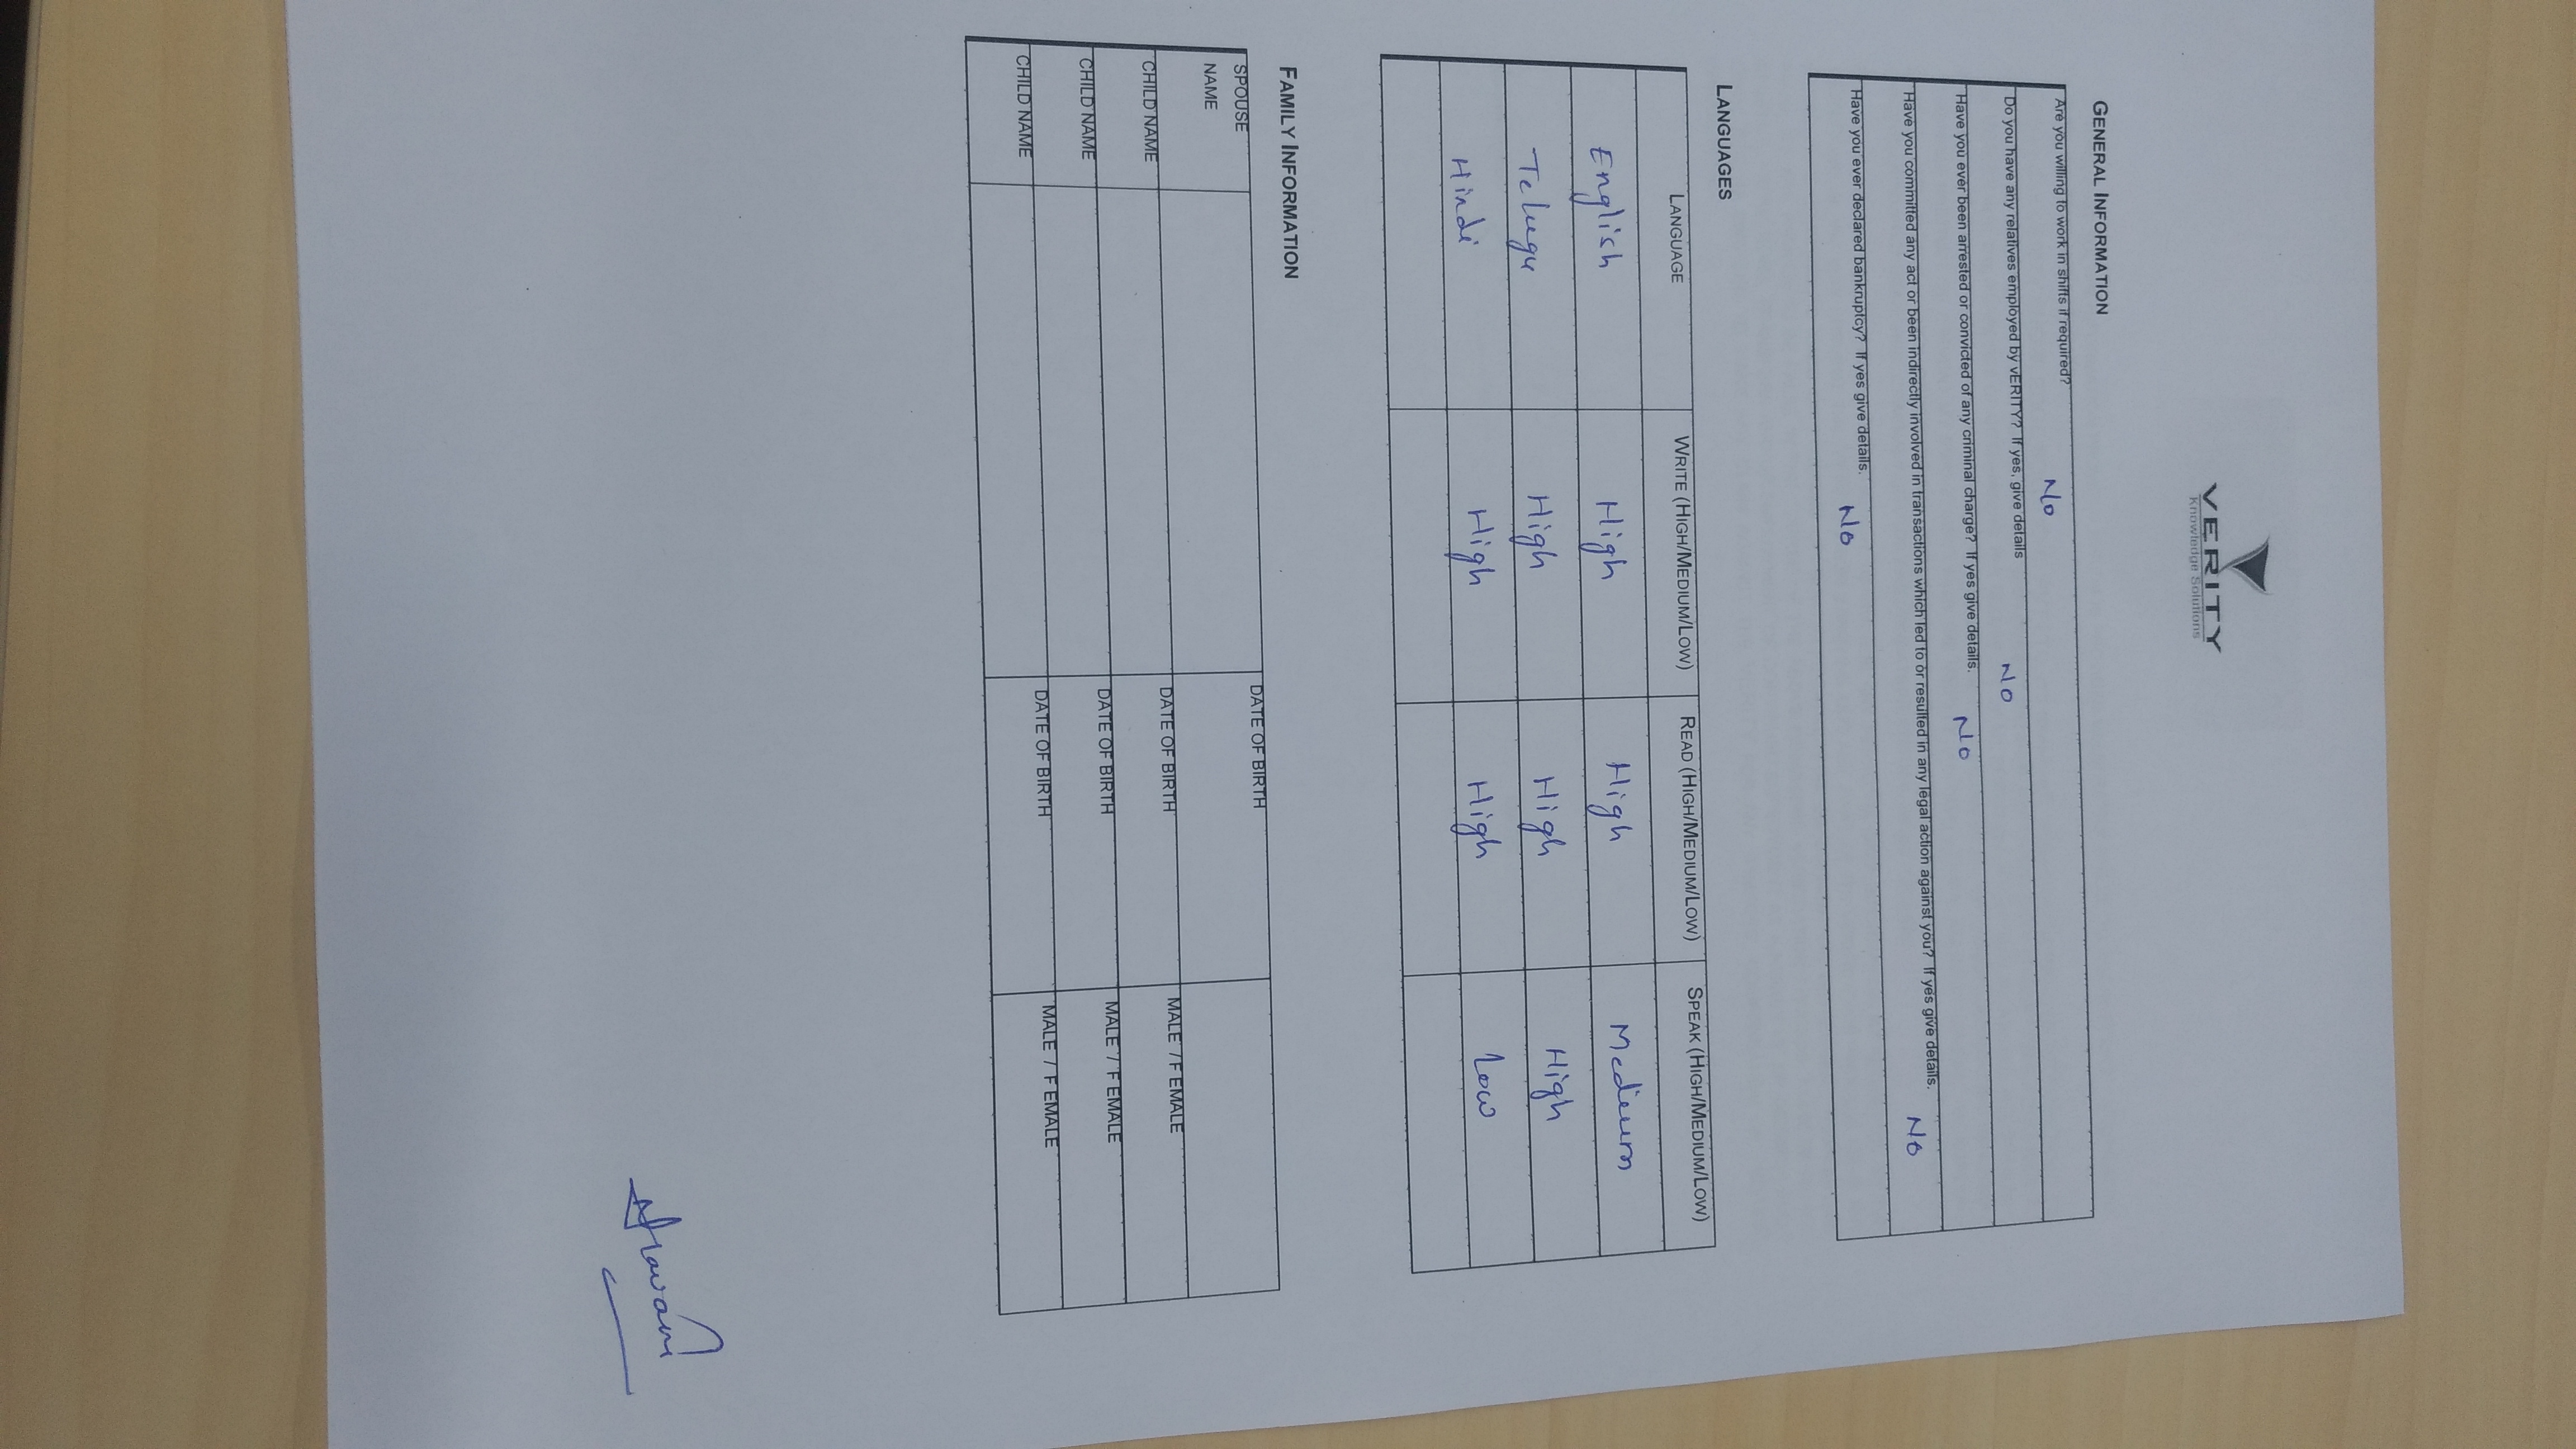 VERITY
Knowledge Solutions
GENERAL INFORMATION
Are you willing to work in shifts if required? No
Do you have any relatives employed by vERITY? If yes, give details No
Have you ever been arrested or convicted of any criminal charge? If yes give details. No
Have you committed any act or been indirectly involved in transactions which led to or resulted in any legal action against you? If yes give details. No
Have you ever declared bankruptcy? If yes give details. No
LANGUAGES
LANGUAGE WRITE (HIGH/MEDIUM/LOW) READ (HIGH/MEDIUM/LOW) SPEAK (HIGH/MEDIUM/LOW)
English High High Medium
Telugu High High High
Hindi High High Low
FAMILY INFORMATION
SPOUSE NAME DATE OF BIRTH
CHILD NAME DATE OF BIRTH MALE / FEMALE
CHILD NAME DATE OF BIRTH MALE / FEMALE
CHILD NAME DATE OF BIRTH MALE / FEMALE